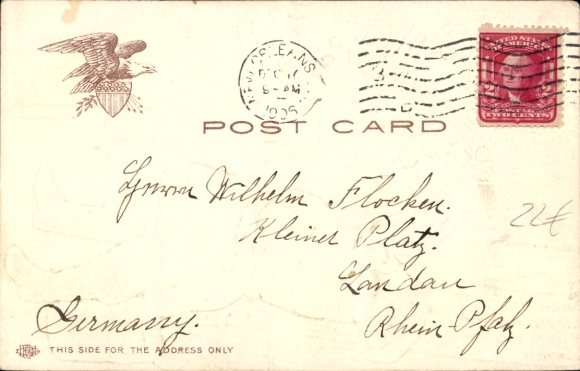 NEW ORLEANS
9-AM
1905
UNITED STATES
OF AMERICA
2 2
TWO CENTS
POST CARD
Herrn Wilhelm Flocken.
Kleiner Platz.
22€
Landau
Rhein Pfalz.
Germany.
THIS SIDE FOR THE ADDRESS ONLY